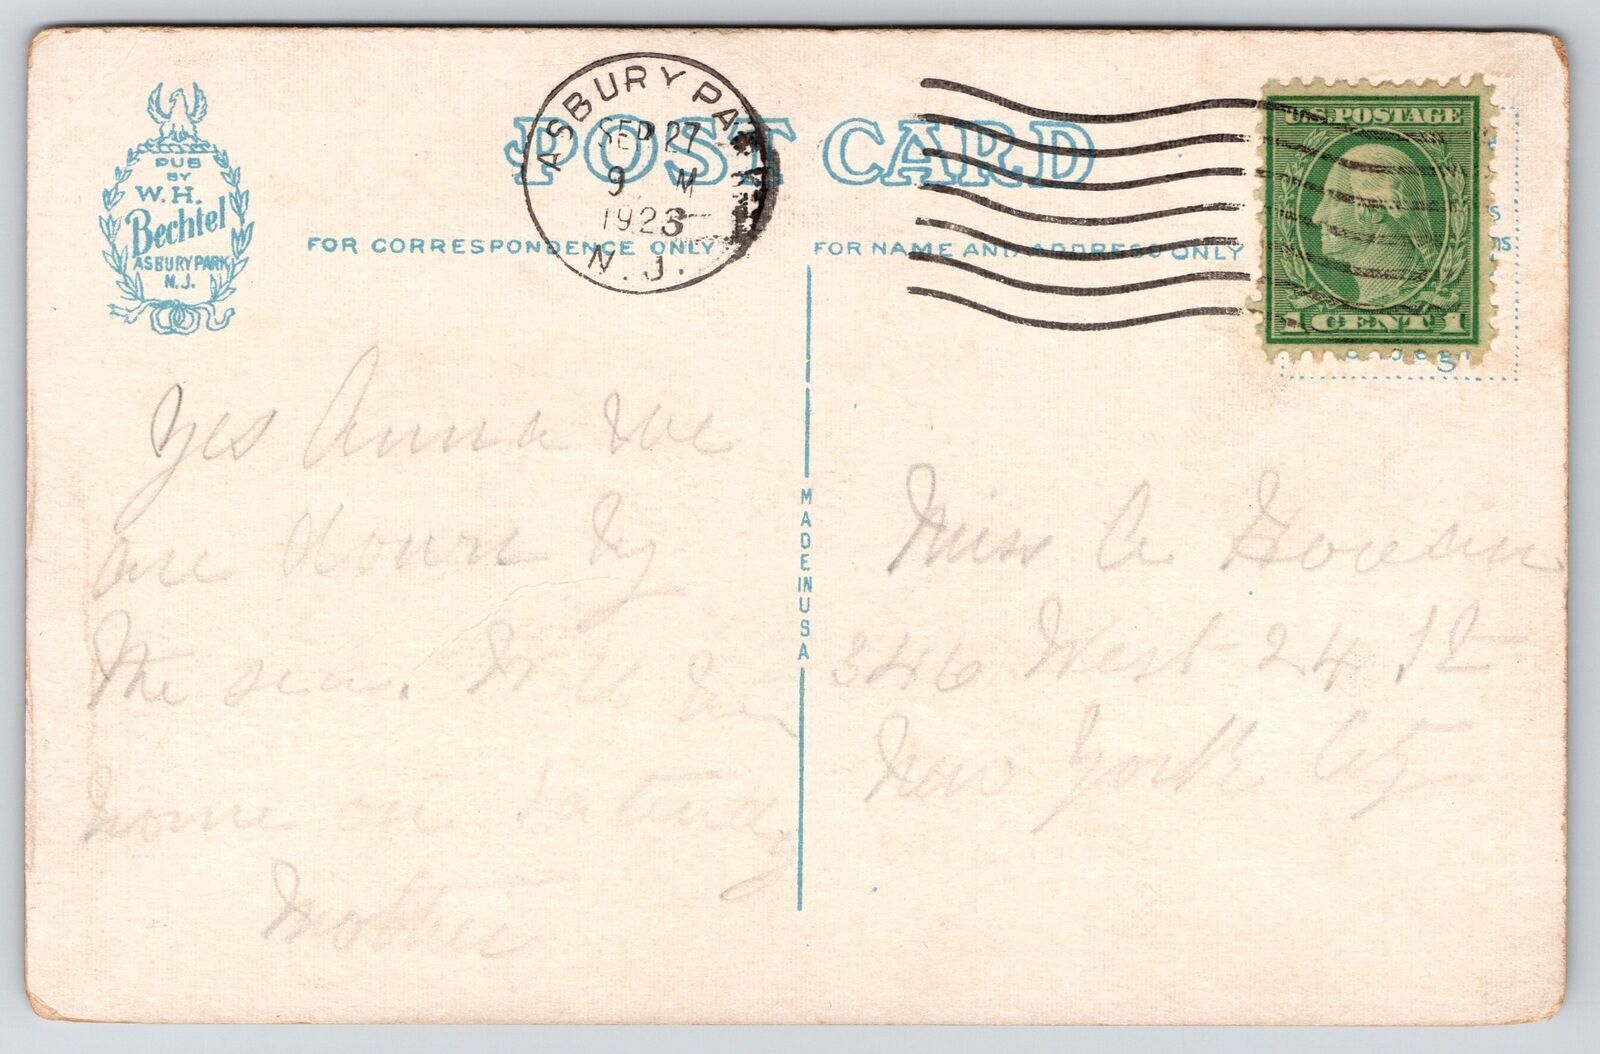 PUB
BY
W. H.
Bechtel
ASBURY PARK
N. J.
POST CARD
ASBURY PARK
SEP 27
9 M
1923
N. J.
U.S. POSTAGE
1 CENT 1
FOR CORRESPONDENCE ONLY
FOR NAME AND ADDRESS ONLY
MADE IN USA
Yes Anna We
are down by
the sea. Will be
home on Saturday
Mother
Miss A
346 West 24 St
New York City